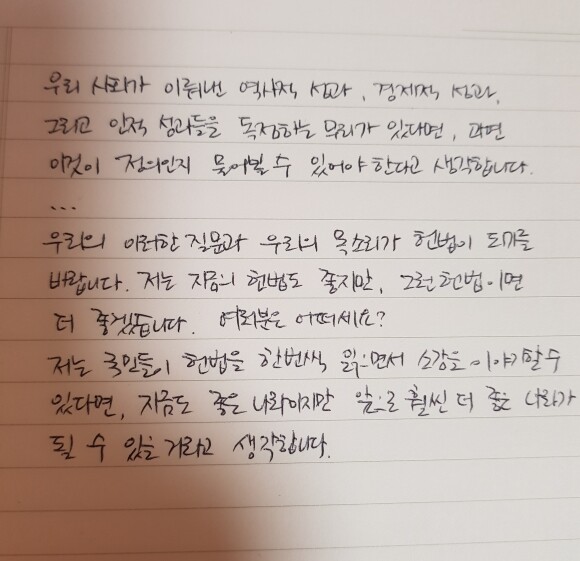 우리 사회가 이뤄낸 역사적 성과, 경제적 성과,
그리고 인적 성과들을 독점하는 무리가 있다면, 과연
이것이 정의인지 물어볼 수 있어야 한다고 생각합니다.
...
우리의 이러한 질문과 우리의 목소리가 헌법이 되기를
바랍니다. 저는 지금의 헌법도 좋지만, 그런 헌법이면
더 좋겠습니다. 여러분은 어떠세요?
저는 국민들이 헌법을 한번씩 읽으면서 소감도 이야기할 수
있다면, 지금도 좋은 나라이지만 앞으로 훨씬 더 좋은 나라가
될 수 있을 거라고 생각합니다.